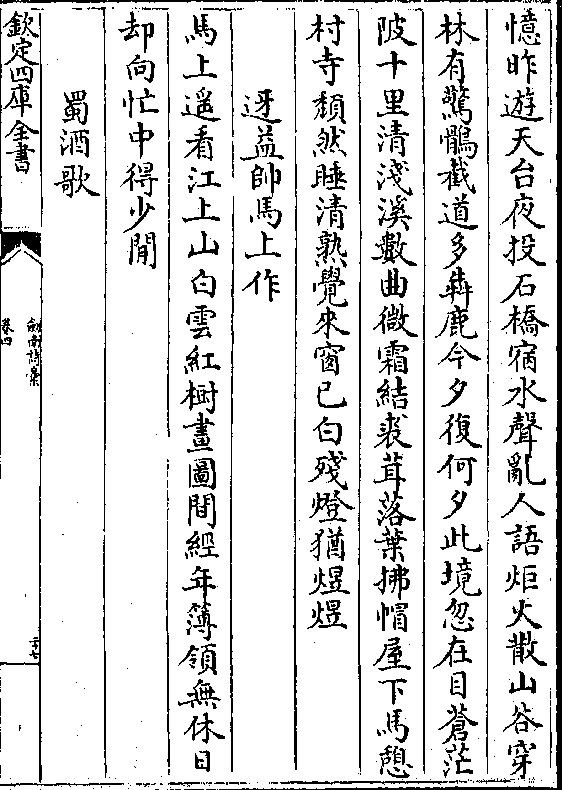 憶昨遊天台夜投石橋宿水聲亂人語炬火散山谷穿
林有驚鶻截道多犇鹿今夕復何夕此境忽在目蒼茫
陂十里清淺溪數曲微霜結裘茸落葉拂帽屋下馬憩
村寺頽然睡清熟覺來窗已白殘燈猶煜煜
迓益帥馬上作
馬上遥看江上山白雲紅樹畫圖間經年簿領無休日
却向忙中得少閒
蜀酒歌
欽定四庫全書
劍南詩稾
卷四
二十七